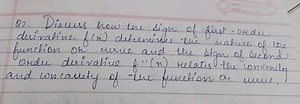 Q2 Discuss how the sign of first-order
derivative f'(x) determines the nature of the
function or curve and the sign of second
order derivative f''(x) relates the convexity
and concavity of the function or curve.